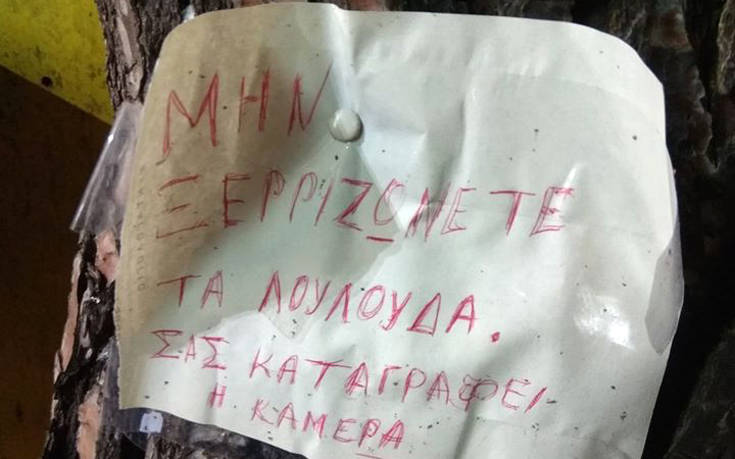 ΜΗΝ
ΞΕΡΡΙΖΩΝΕΤΕ
ΤΑ ΛΟΥΛΟΥΔΑ.
ΣΑΣ ΚΑΤΑΓΡΑΦΕΙ
Η ΚΑΜΕΡΑ